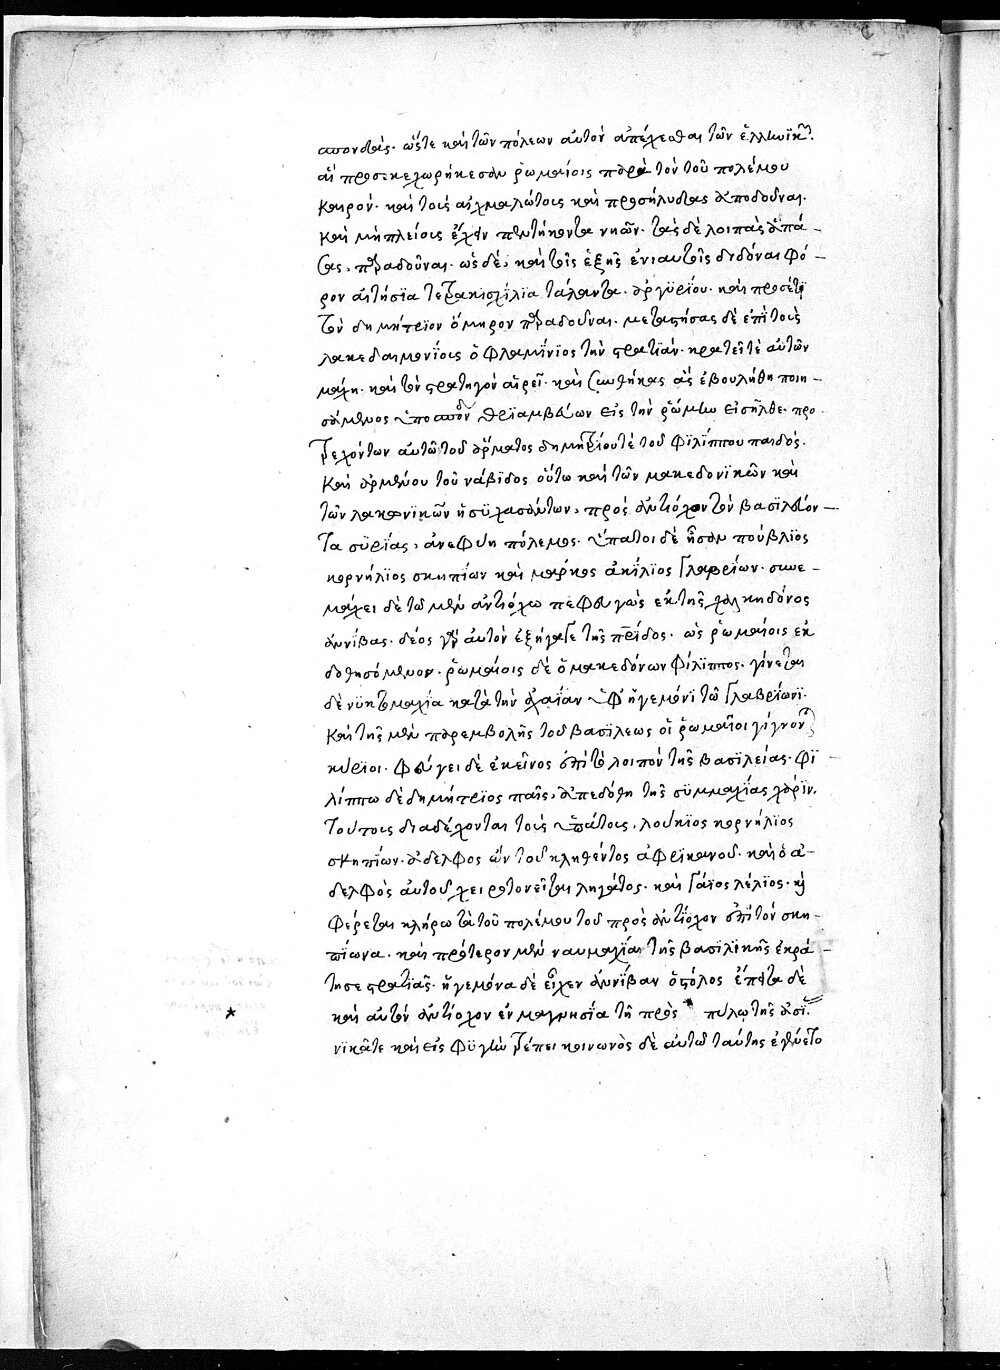 σπονδάς. ὥστε καὶ τῶν πόλεων αὐτὸν ἀπέχεσθαι τῶν ἑλληνικῶν.
αἳ προσκεχωρήκεσαν ῥωμαίοις παρὰ τὸν τοῦ πολέμου
καιρόν. καὶ τοὺς αἰχμαλώτους καὶ προσήλυτας ἀποδοῦναι.
καὶ μὴ πλείοις ἔχειν πεντήκοντα νηῶν. τὰς δὲ λοιπὰς ἁπά-
σας, παραδοῦναι. ὡς δὲ, καὶ τοῖς ἑξῆς ἐνιαυτοῖς διδόναι φό-
ρον αἰτήσϊα τετρακισχίλϊα τάλαντα ἀργυρίου. καὶ προσέτι
τὸν δημήτριον ὅμηρον παραδοῦναι. μεταστήσας δὲ ἐπὶ τοὺς
λακεδαιμονίοις ὁ φλαμίνϊος τὴν στρατϊὰν. κρατεῖ τὲ αὐτῶν
μάχη. καὶ τὸν στρατηγὸν αἱρεῖ. καὶ συνθήκας ἃς ἐβουλήθη ποιη-
σάμενος θρϊαμβεύων εἰς τὴν ῥώμην εἰσῆλθε. προ
τρεχόντων αὐτῶ τοῦ ἅρματος δημητρίου τὲ τοῦ φϊλίππου παιδὸς.
καὶ ἀρμένου τοῦ νάβϊδος οὕτω καὶ τῶν μακεδονϊκῶν καὶ
τῶν λακωνϊκῶν ἡσϋχασάντων, πρὸς ἀντίοχον τὸν βασϊλεύον-
τα συρίας, ἀνεφύη πόλεμος. ὕπατοι δὲ ἦσαν πούβλϊος
κορνήλϊος σκηπίων καὶ μάρκος ἀκίλϊος γλαβρίων. συνε-
μάχει δὲ τῶ μὲν ἀντιόχω πεφευγὼς ἐκ τῆς χαλκηδόνος
ἀννίβας. δέος γὰρ αὐτὸν ἐξήγαγε τῆς πρίδος. ὡς ῥωμαίοις ἐκ
δοθησόμενον. ῥωμαίοις δὲ ὁ μακεδόνων φίλϊππος. γίνεται
δὲ νϋκτομαχία κατὰ τὴν ἀχαΐαν ὑφ' ἡγεμόνϊ τῶ γλαβρίωνϊ.
καὶ τῆς μὲν παρεμβολῆς τοῦ βασϊλέως οἱ ῥωμαῖοι γίγνονται
κύριοι. φεύγει δὲ ἐκεῖνος ἐπὶ τὸ λοιπὸν τῆς βασϊλείας. φϊ
λίππω δὲ δημήτρϊος παῖς, ἀπεδόθη τῆς συμμαχίας χάρϊν.
τούτοις διαδέχονται τοὺς ὑπάτοις, λούκϊος κορνήλϊος
σκηπίων. ἀδελφὸς ὢν τοῦ κληθέντος ἀφρϊκανοῦ. καὶ ὁ ἀ-
δελφὸς αὐτοῦ χειροτονεῖται ληγάτος. καὶ γάϊος λέλϊος. καὶ
φέρεται κλήρω τὰ τοῦ πολέμου τοῦ πρὸς ἀντίοχον ἐπὶ τὸν σκη-
πίωνα. καὶ πρότερον μὲν ναυμαχία τῆς βασϊλϊκῆς ἐκρά-
τησε στρατιᾶς. ἡγεμόνα δὲ εἶχεν ἀννίβαν ὁ στόλος ἔπειτα δὲ
καὶ αὐτὸν ἀντίοχον ἐν μαγνησία τῆ πρὸς πύλω τῆς ἀσϊ
νϊκᾶτε καὶ εἰς φϋγὴν τρέπει κοινωνὸς δὲ αὐτῶ ταύτης ἐγένετο